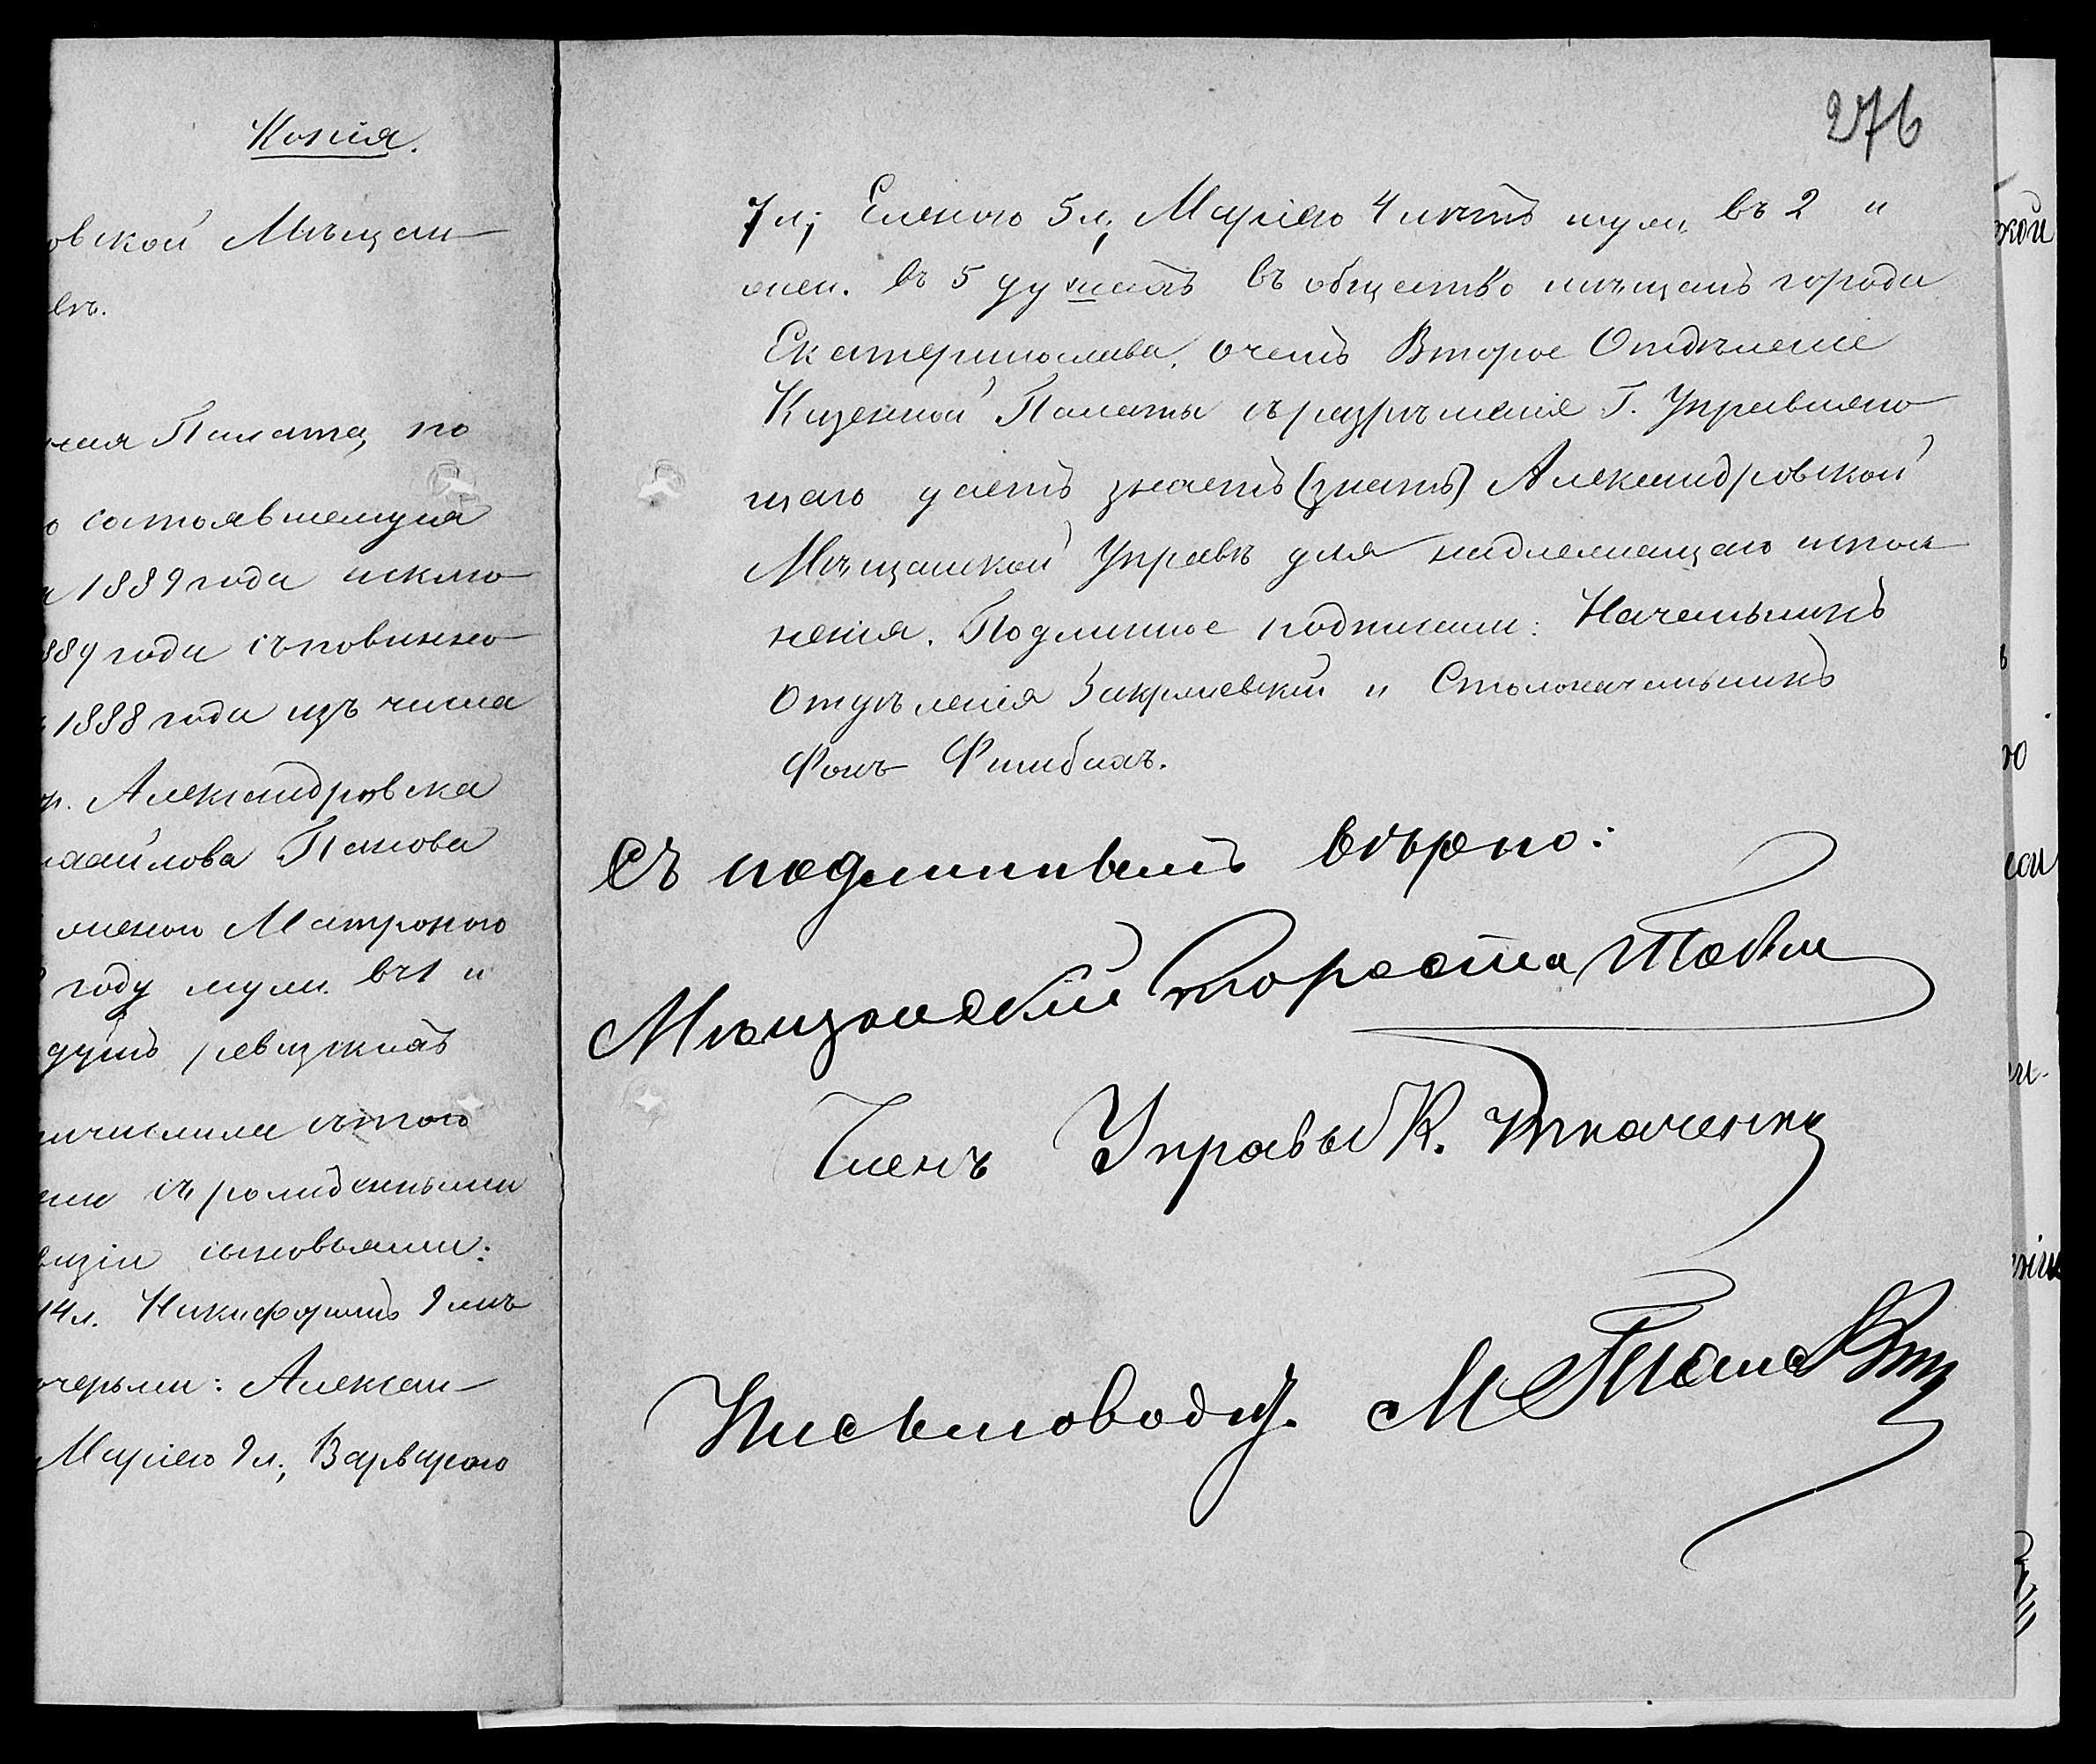 Копія.
овской Мѣщан-
вѣ.
ная Палата, по
о состоявшемуся
1889 года исклю-
889 года съ повинно-
1888 года изъ числа
Александровска
хайлова Панова
женою Матроною
году муж. въ 1 и
душъ ревизкихъ
причислила съ того
съ рожденными
визіи сыновьями:
14 л. Никифоромъ 9 лѣтъ
очерьми: Алексан-
Маріею 9 л., Варварою
276
7 л., Еленою 5 л., Маріею 4 лѣтъ муж. въ 2 и
жен. въ 5 душахъ въ общество мѣщанъ города
Екатеринослава, о чемъ Второе Отдѣленіе
Казенной Палаты съ разрѣшенія Г. Управляю-
щаго даетъ знаетъ (знать) Александровской
Мѣщанской Управѣ для надлежащаго испол-
ненія. Подлинное подписали: Начальникъ
Отдѣленія Закржевскій и Столоначальникъ
Фонъ
Съ подлиннымъ вѣрно:
Мѣщанскій Староста
Членъ Управы К. Ткаченко
Письмоводит. М